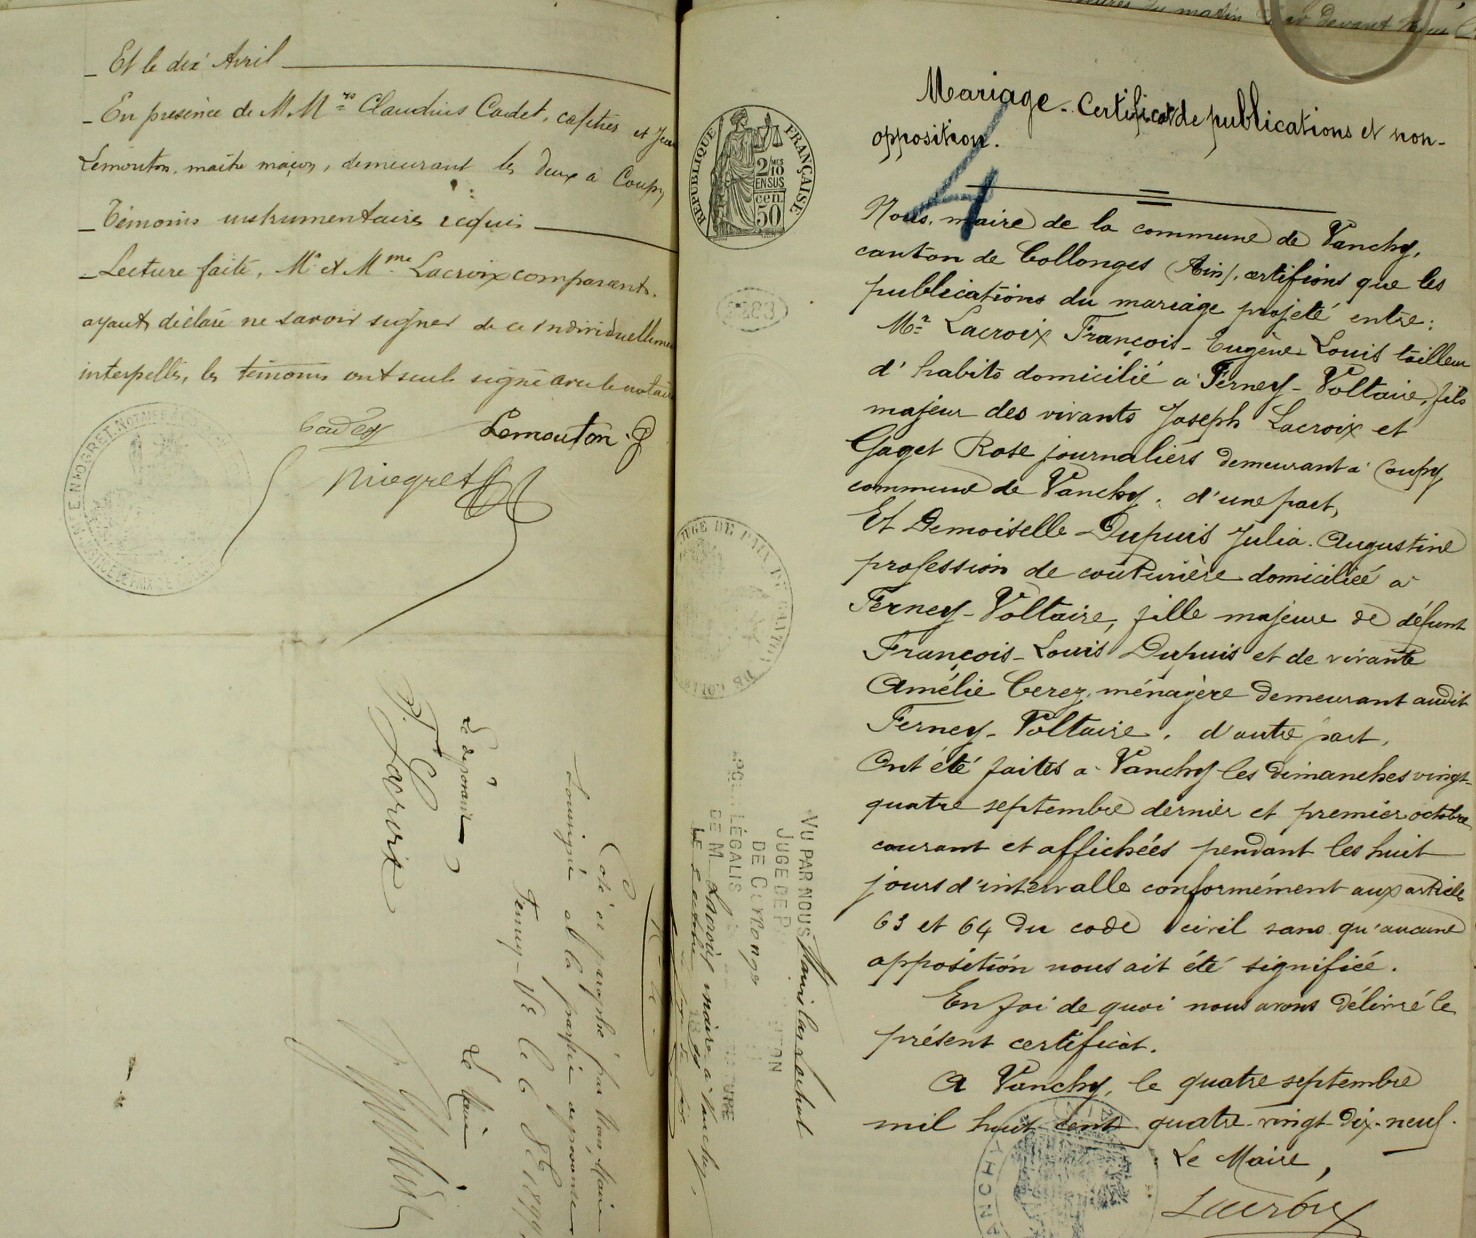 Et le dix Avril
En présence de M.Mrs Claudius Cadet, cafetier et Jean
Lemouton, maître maçon, demeurant les deux à Coupy
Témoins instrumentaires requis
Lecture faite, Mr et Mme Lacroix comparants,
ayant déclaré ne savoir signer de ce individuellement
interpellés, les témoins ont seuls signé avec le notaire
Cadet
Lemouton. J
Niogret
Le déposant
F. E. Lacroix
Coté et paraphé par Nous, Maire
soussigné et la partie
Ferney-Vre le 6 8bre 1899
Le Maire
VU PAR NOUS Stanislas
JUGE DE P
DE COLLONGES
LÉGALIS
DE M. Lacroix maire à Vanchy
LE
Mariage - Certificat de publications et non-
opposition.
4
RÉPUBLIQUE FRANÇAISE
2/10
EN SUS
50 cen.
JUGE DE PAIX DU CANTON DE COLL
Nous, maire de la commune de Vanchy,
canton de Collonges (Ain), certifions que les
publications du mariage projeté entre:
Mr Lacroix François-Eugène-Louis tailleur
d'habits domicilié à Ferney-Voltaire, fils
majeur des vivants Joseph Lacroix et
Gaget Rose journaliers demeurant à Coupy
commune de Vanchy, d'une part,
Et Demoiselle Dupuis Julia-Augustine
profession de couturière domiciliée à
Ferney-Voltaire, fille majeure de défunt
François-Louis Dupuis et de vivante
Amélie Cerez, ménagère demeurant audit
Ferney-Voltaire, d'autre part,
Ont été faites à Vanchy les dimanches vingt-
quatre septembre dernier et premier octobre
courant et affichées pendant les huit
jours d'intervalle conformément aux article
63 et 64 du code civil sans qu'aucune
opposition nous ait été signifiée.
En foi de quoi nous avons délivré le
présent certificat.
A Vanchy, le quatre septembre
mil huit cent quatre-vingt-dix-neuf.
Le Maire,
Lacroix